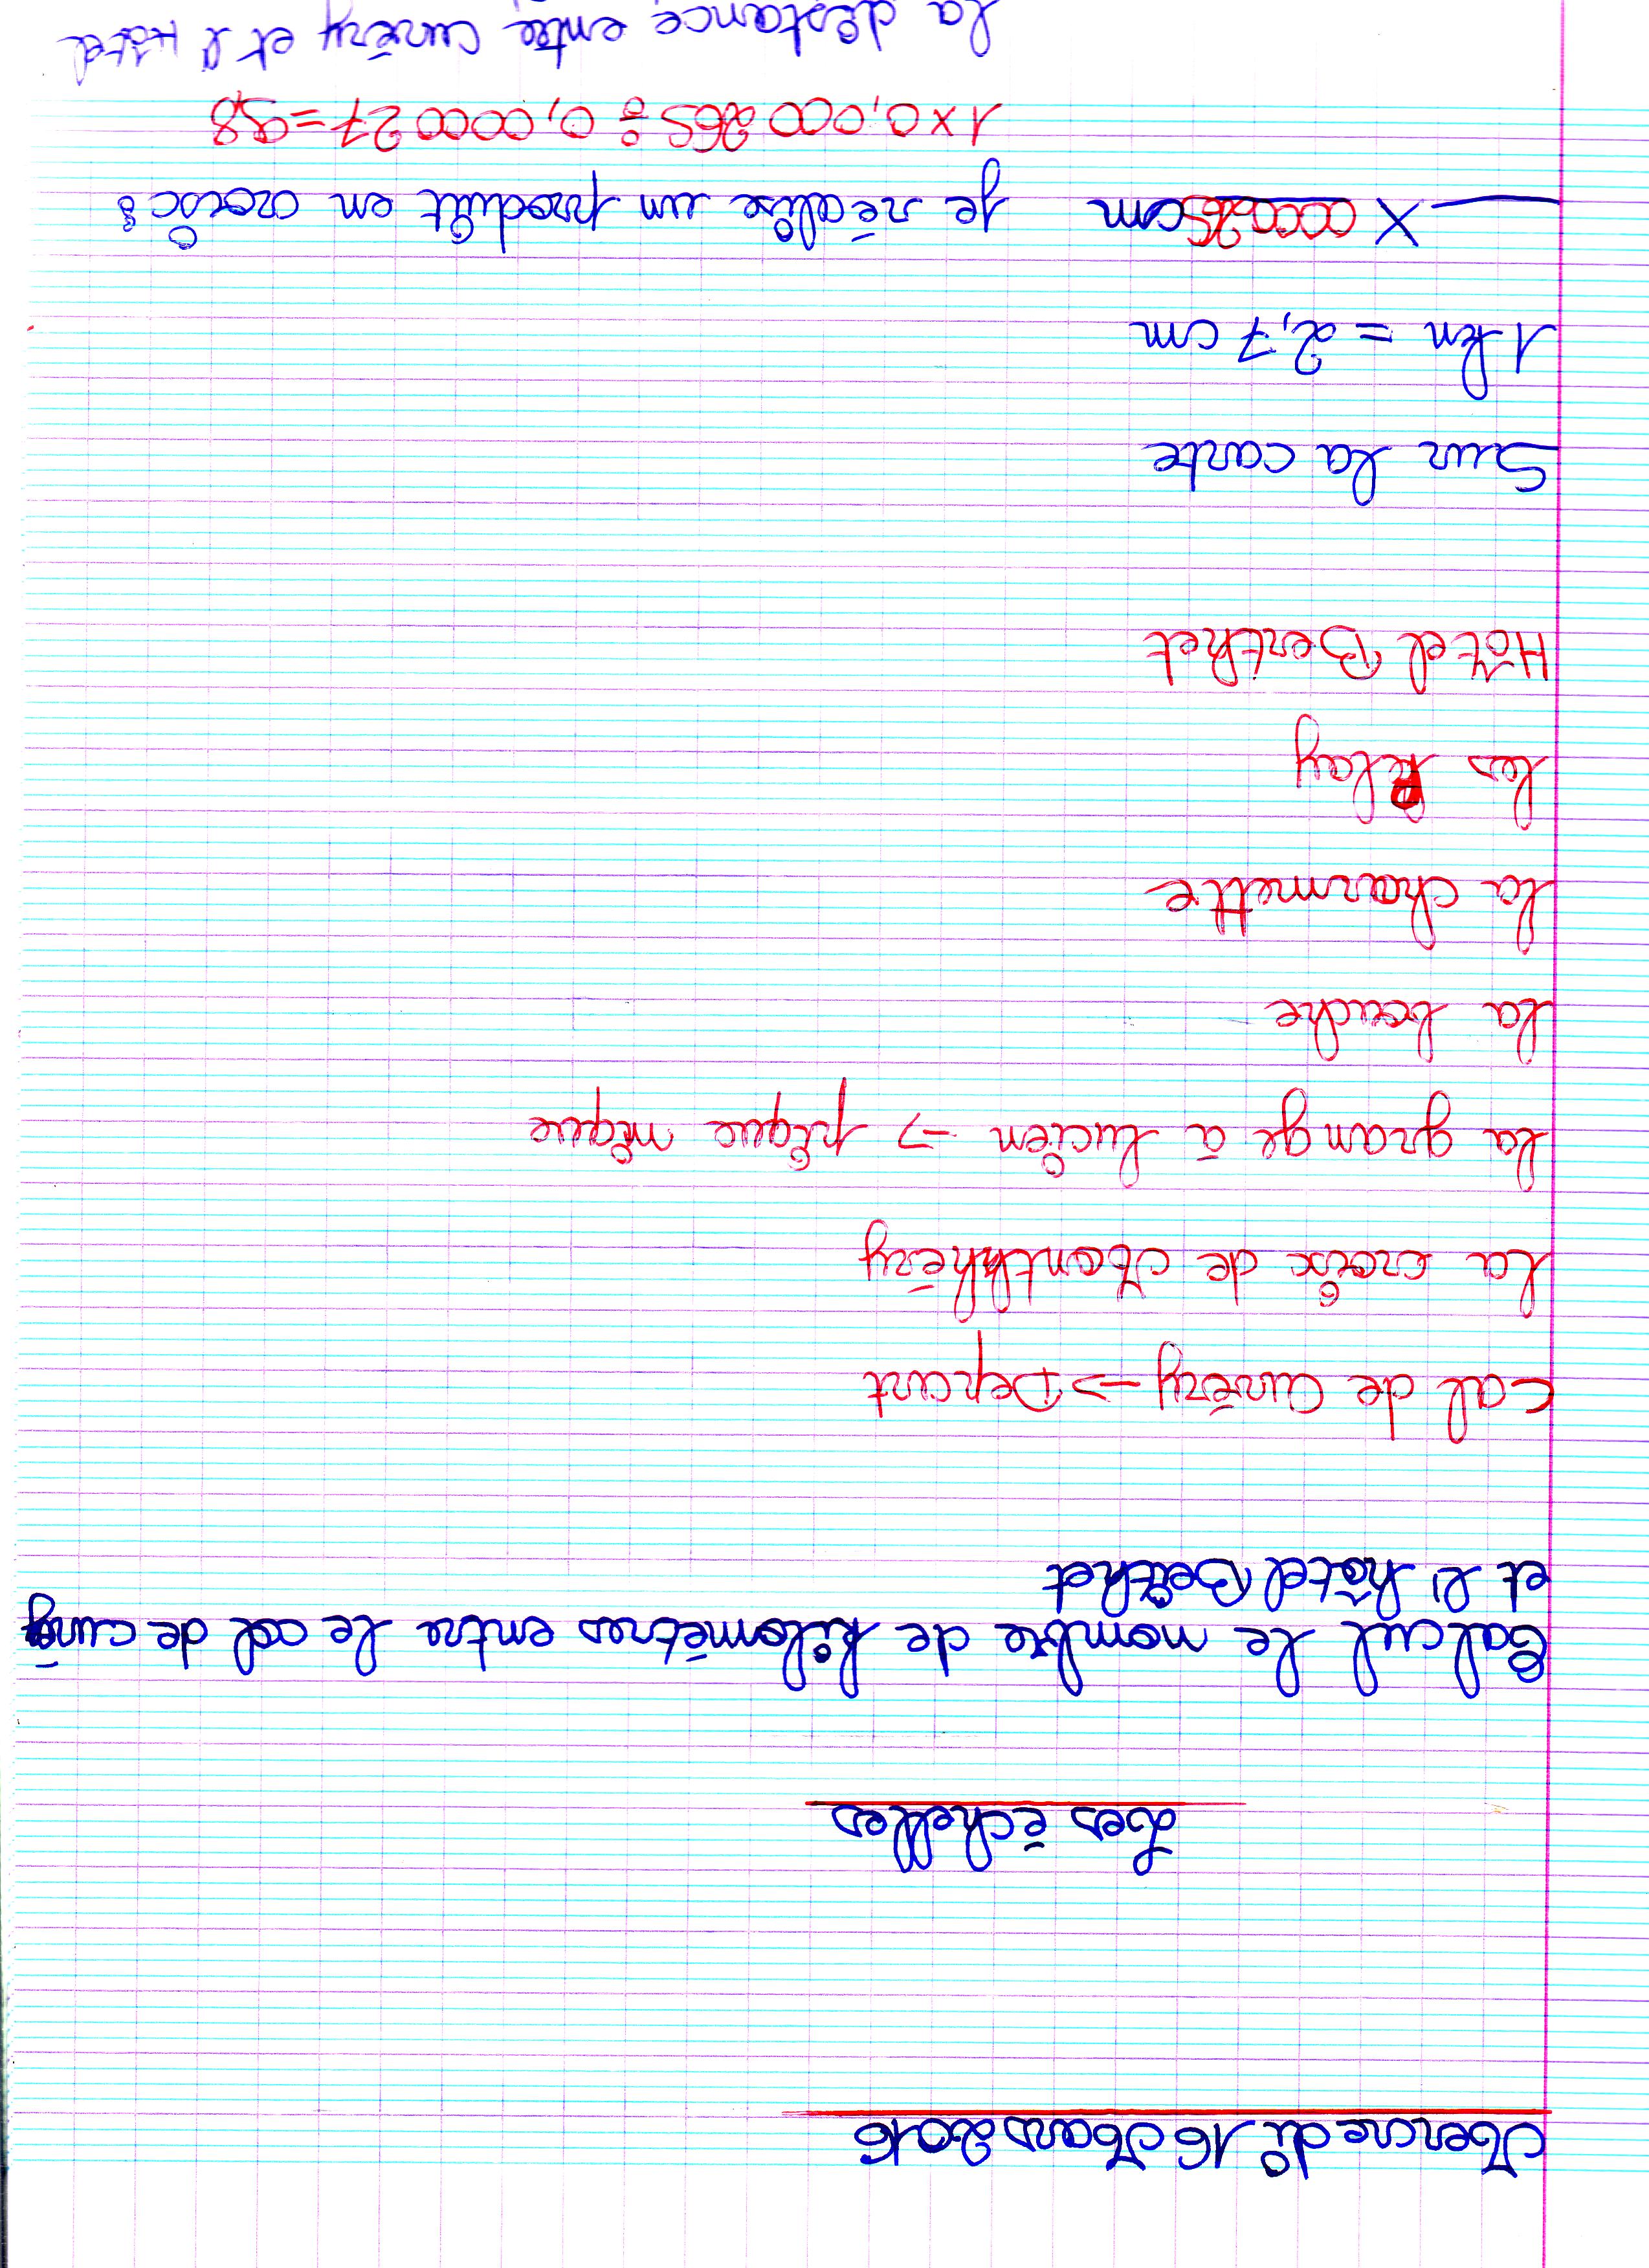 Mercredi 16 Mars 2016
Les échelles
Calcul le nombre de kilomètres entre le col de curéy
et l'hôtel Bérthet
Col de Curéry -> Depart
La croix de Monthhéry
La grange à Lucien -> pique nique
La bauche
La charmette
Les Relay
Hôtel Berthet
Sur la carte
1 km = 2,7 cm
X 000026,5 cm je réalise un produit en croix :
1 x 0,000 265 : 0,0000 27 = 9,8
La distance entre curéry et l'Hôtel